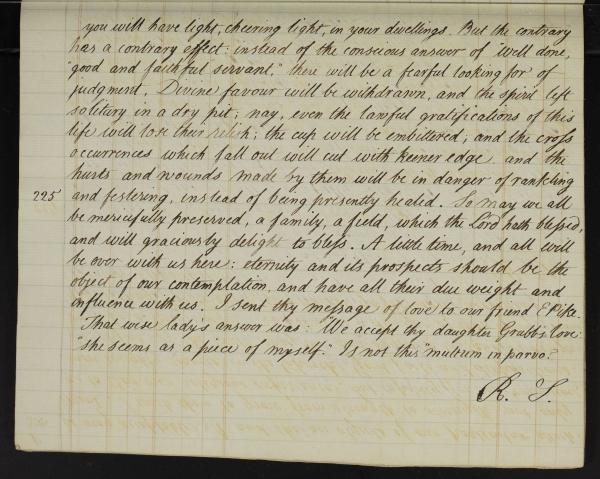 you will have light, cheering light, in your dwellings. But the contrary
has a contrary effect: instead of the conscious answer of "Well done,
"good and faithful servant," there will be a fearful looking for of
judgment. Divine favour will be withdrawn, and the spirit left
solitary in a dry pit; nay, even the lawful gratifications of this
life will lose their relish; the cup will be embittered; and the cross
occurrences which fall out will cut with keener edge and the
hurts and wounds made by them will be in danger of rankling
225 and festering, instead of being presently healed. So may we all
be mercifully preserved, a family, a field, which the Lord hath blessed,
and will graciously delight to bless. A little time, and all will
be over with us here: eternity and its prospects should be the
object of our contemplation, and have all their due weight and
influence with us. I sent thy message of love to our friend E Pike.
That wise lady's answer was: "We accept thy daughter Grubb's love:
"she seems as a piece of myself." Is not this "multum in parvo?
R. S.